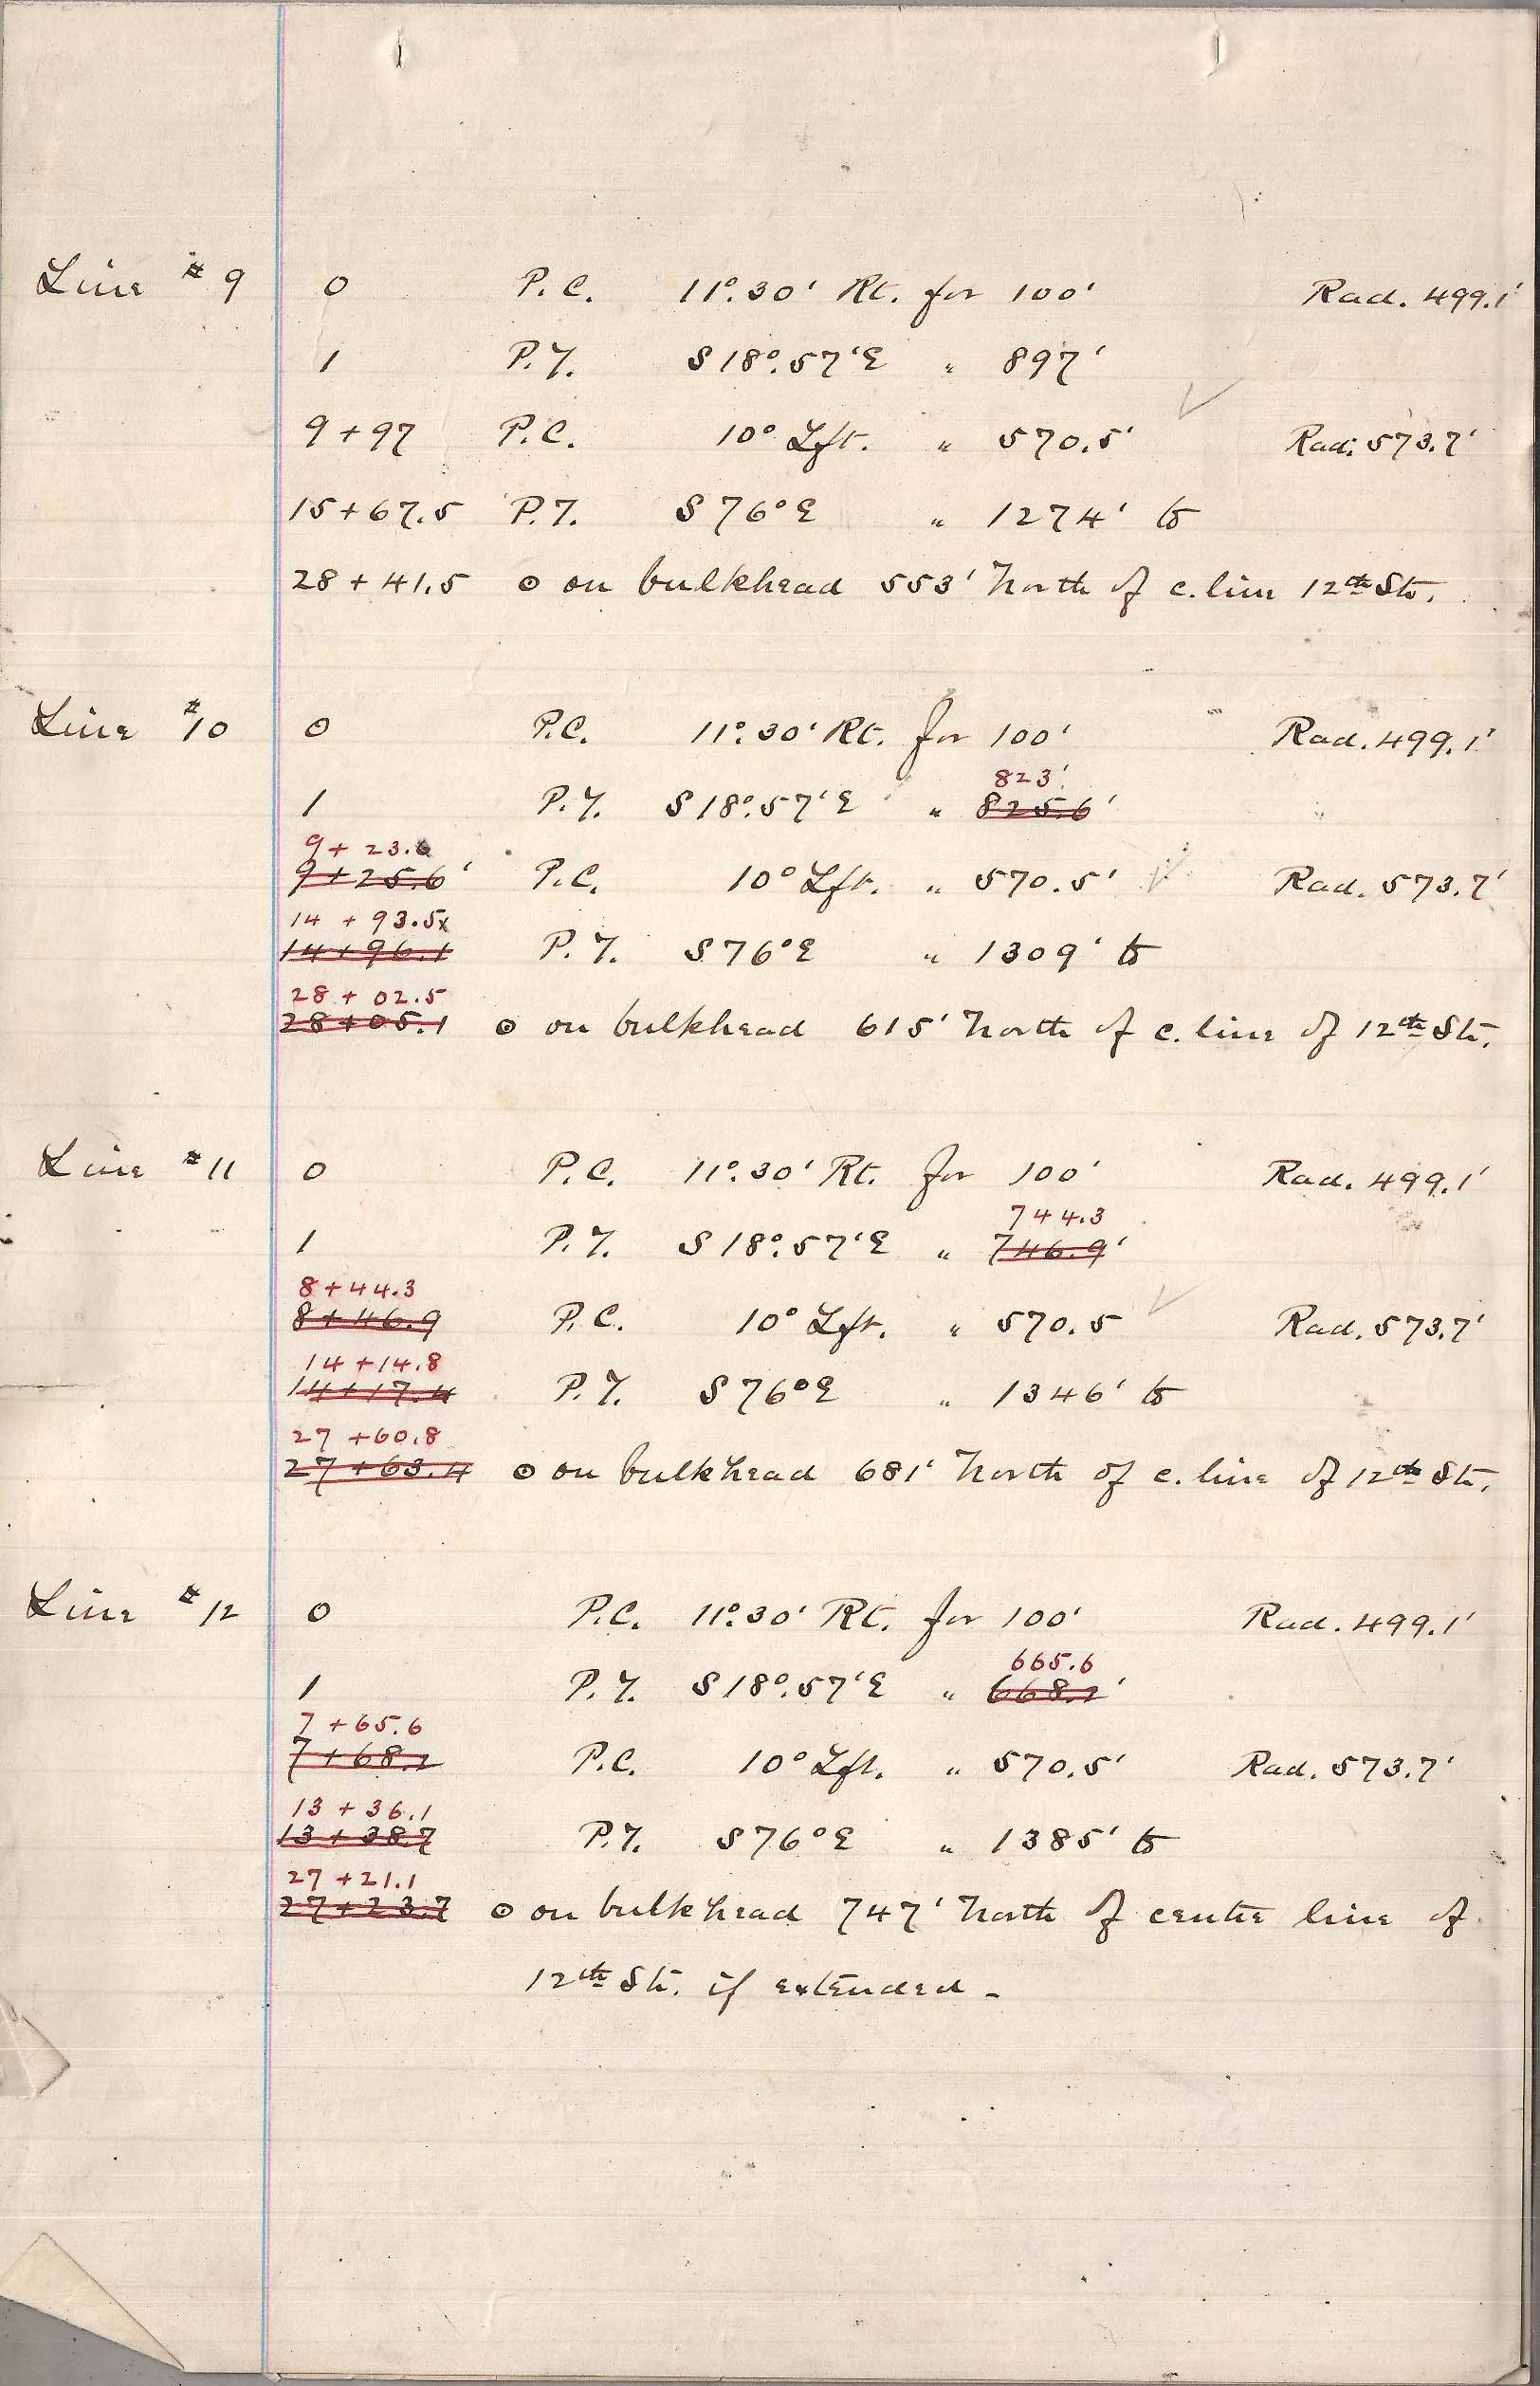 Line #9 0 P.C. 11°.30' Rt. for 100' Rad. 499.1'
1 P.T. S 18°.57'E " 897'
9+97 P.C. 10° Lft. " 570.5' Rad. 573.7'
15+67.5 P.T. S 76° E " 1274' to
28+41.5 ⊙ on bulkhead 553' North of c. line 12th St.
Line #10 0 P.C. 11°.30' Rt. for 100' Rad. 499.1'
823'
1 P.T. S 18°.57'E " 825.6'
9+23.0
9+25.6' P.C. 10° Lft. " 570.5' Rad. 573.7'
14+93.5x
14+96.1 P.T. S 76° E " 1309' to
28+02.5
28+05.1 ⊙ on bulkhead 615' North of c. line of 12th St.
Line #11 0 P.C. 11°.30' Rt. for 100' Rad. 499.1'
744.3
1 P.T. S 18°.57'E " 746.9'
8+44.3
8+46.9 P.C. 10° Lft. " 570.5 Rad. 573.7'
14+14.8
14+17.4 P.T. S 76° E " 1346' to
27+60.8
27+63.4 ⊙ on bulkhead 681' North of c. line of 12th St.
Line #12 0 P.C. 11°.30' Rt. for 100' Rad. 499.1'
665.6
1 P.T. S 18°.57'E " 668.2'
7+65.6
7+68.2 P.C. 10° Lft. " 570.5' Rad. 573.7'
13+36.1
13+38.7 P.T. S 76° E " 1385' to
27+21.1
27+23.7 ⊙ on bulkhead 747' North of centre line of
12th St. if extended -